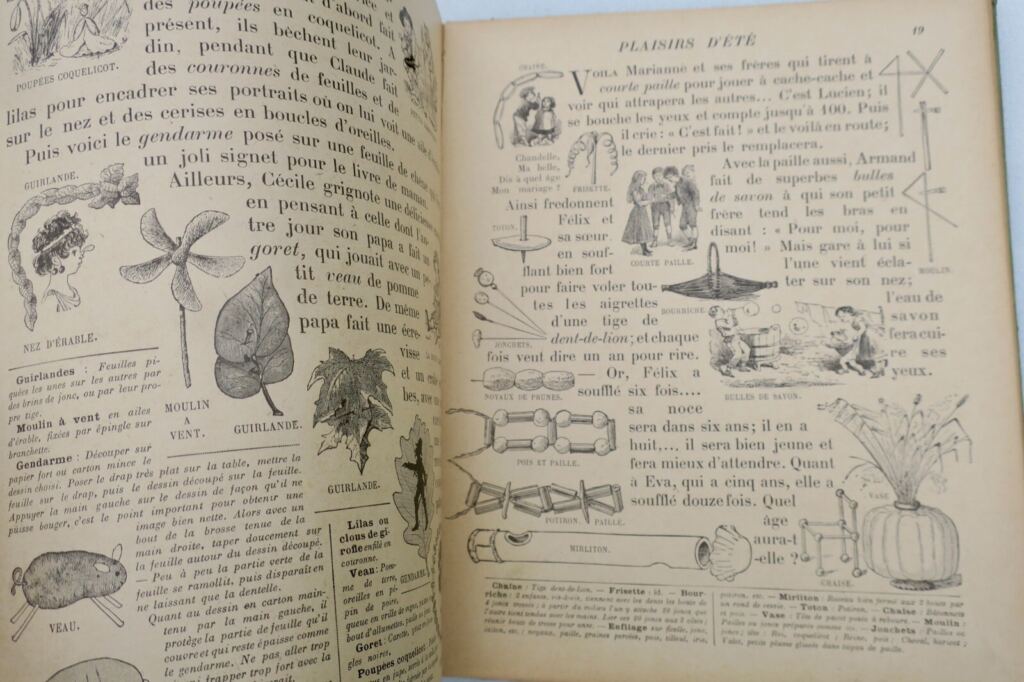 d'abord fait
des poupées en coquelicot. A
présent, ils bêchent leur jar-
din, pendant que Claude fait
des couronnes de feuilles et de
lilas pour encadrer ses portraits où on lui voit une
sur le nez et des cerises en boucles d'oreilles.
Puis voici le gendarme posé sur une feuille de
un joli signet pour le livre de maman.
Ailleurs, Cécile grignote une délicieuse
en pensant à celle dont l'au-
tre jour son papa a fait un
goret, qui jouait avec un pe-
tit veau de pomme
de terre. De même
papa fait une écre-
visse
et un
bes, avec
POUPÉES COQUELICOT.
GUIRLANDE.
NEZ D'ÉRABLE.
MOULIN
A
VENT.
GUIRLANDE.
GUIRLANDE.
GENDARME
Guirlandes : Feuilles pi-
quées les unes sur les autres par
des brins de jonc, ou par leur pro-
pre tige.
Moulin à vent en ailes
d'érable, fixées par épingle sur
branchette.
Gendarme : Découper sur
papier fort ou carton mince le
dessin choisi. Poser le drap très plat sur la table, mettre la
feuille sur le drap, puis le dessin découpé sur la feuille.
Appuyer la main gauche sur le dessin de façon qu'il ne
puisse bouger, c'est le point important pour obtenir une
image bien nette. Alors avec un
bout de la brosse tenue de la
main droite, taper doucement sur
la feuille autour du dessin découpé.
— Peu à peu la partie verte de la
feuille se ramollit, puis disparaît en
ne laissant que la dentelle.
Quant au dessin en carton main-
tenu par la main gauche, il
protège la partie de feuille qu'il
couvre et qui reste épaisse comme
le gendarme. Ne pas aller trop
frapper trop fort avec la
VEAU.
Lilas ou
clous de gi-
rofle enfilé en
couronne.
Veau : Pom-
me de terre,
oreilles en pé-
pin de poire,
queue en vrille de
bout d'allumettes,
Goret : Carotte,
gles noires,
Poupées coquelicot :
PLAISIRS D'ÉTÉ
19
VOILA Marianne et ses frères qui tirent à
courte paille pour jouer à cache-cache et
voir qui attrapera les autres... C'est Lucien; il
se bouche les yeux et compte jusqu'à 100. Puis
il crie : « C'est fait! » et le voilà en route;
le dernier pris le remplacera.
Avec la paille aussi, Armand
fait de superbes bulles
de savon à qui son petit
frère tend les bras en
disant : « Pour moi, pour
moi! » Mais gare à lui si
l'une vient écla-
ter sur son nez;
l'eau de
savon
fera cui-
re ses
yeux.
CHAINE.
Chandelle,
Ma belle,
Dis à quel âge
Mon mariage ?
FRISETTE.
Ainsi fredonnent
Félix et
sa sœur
en souf-
flant bien fort
pour faire voler tou-
tes les aigrettes
d'une tige de
dent-de-lion; et chaque
fois veut dire un an pour rire.
— Or, Félix a
soufflé six fois....
sa noce
sera dans six ans; il en a
huit,... il sera bien jeune et
fera mieux d'attendre. Quant
à Eva, qui a cinq ans, elle a
soufflé douze fois. Quel
âge
aura-t
-elle ?
TOTON.
COURTE PAILLE.
MOULIN.
BOURRICHE
JONCHETS.
NOYAUX DE PRUNES.
BULLES DE SAVON.
POIS ET PAILLE.
POTIRON.
PAILLE.
MIRLITON.
VASE
CHAISE.
Chaîne : Tige dent-de-lion. — Frisette : id. — Bour-
riche :
— Enfilage sur ficelle, jonc,
— Mirliton :
— Toton : Potiron. — Chaise :
— Vase :
— Moulin :
— Jonchets :